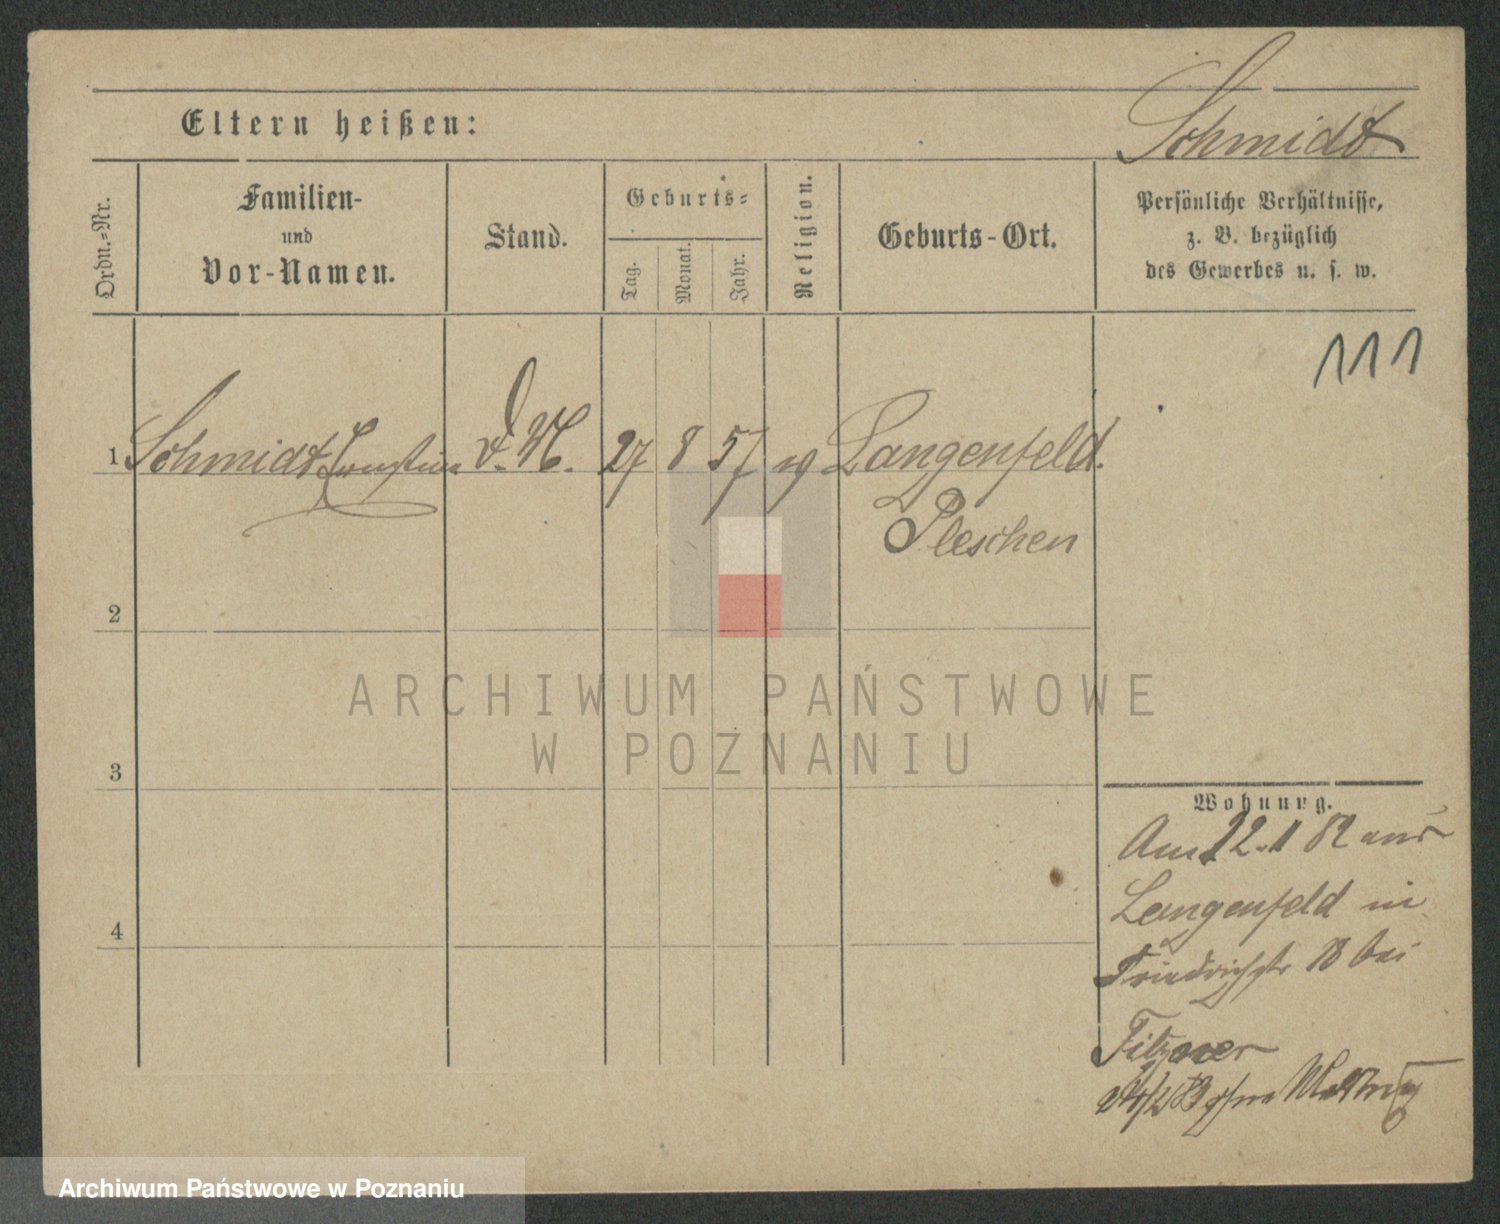 Schmidt
Eltern heißen:
Ordn.-Nr.
Familien-
und
Vor-Namen.
Stand.
Geburts-
Tag.
Monat.
Jahr.
Religion.
Geburts-Ort.
Persönliche Verhältnisse,
z. B. bezüglich
des Gewerbes u. s. w.
111
1 Schmidt d. M. 27 8 57 Langenfeld.
Pleschen
2
3
4
ARCHIWUM PAŃSTWOWE
W POZNANIU
Wohnung.
Am 22.1 82 aus
Langenfeld in
Friedrichstr 18 bei
Archiwum Państwowe w Poznaniu